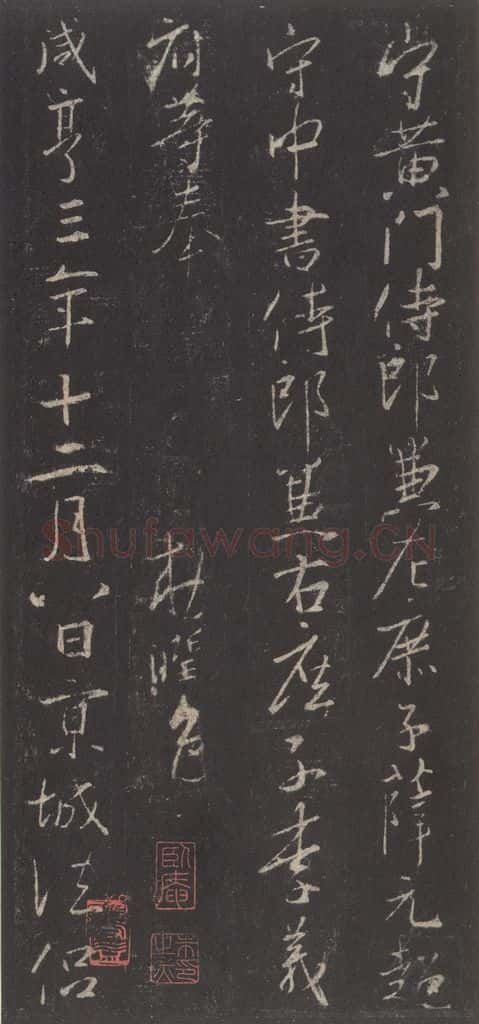 守黃門侍郎兼左庶子薛元超
守中書侍郎兼右庶子李義
府等奉 敕潤色
咸亨三年十二月八日京城法侶
臥庵
Shufawang.CN